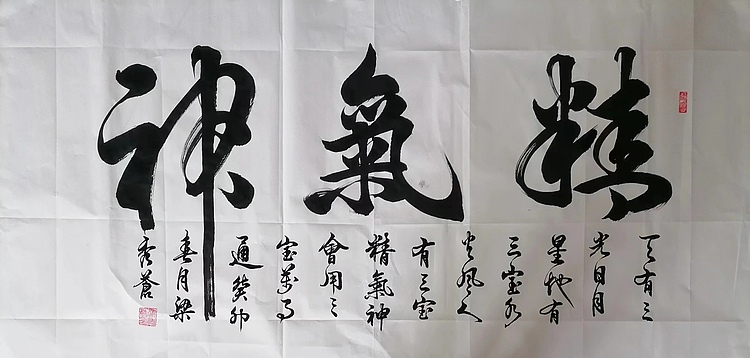 精氣神
天有三
光日月
星地有
三宝水
火風人
有三宝
精氣神
會用三
宝萬事
通癸卯
春月梁
秀蒼